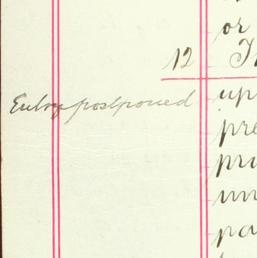 or
12
Entry postponed up
pre
pri
un
pa